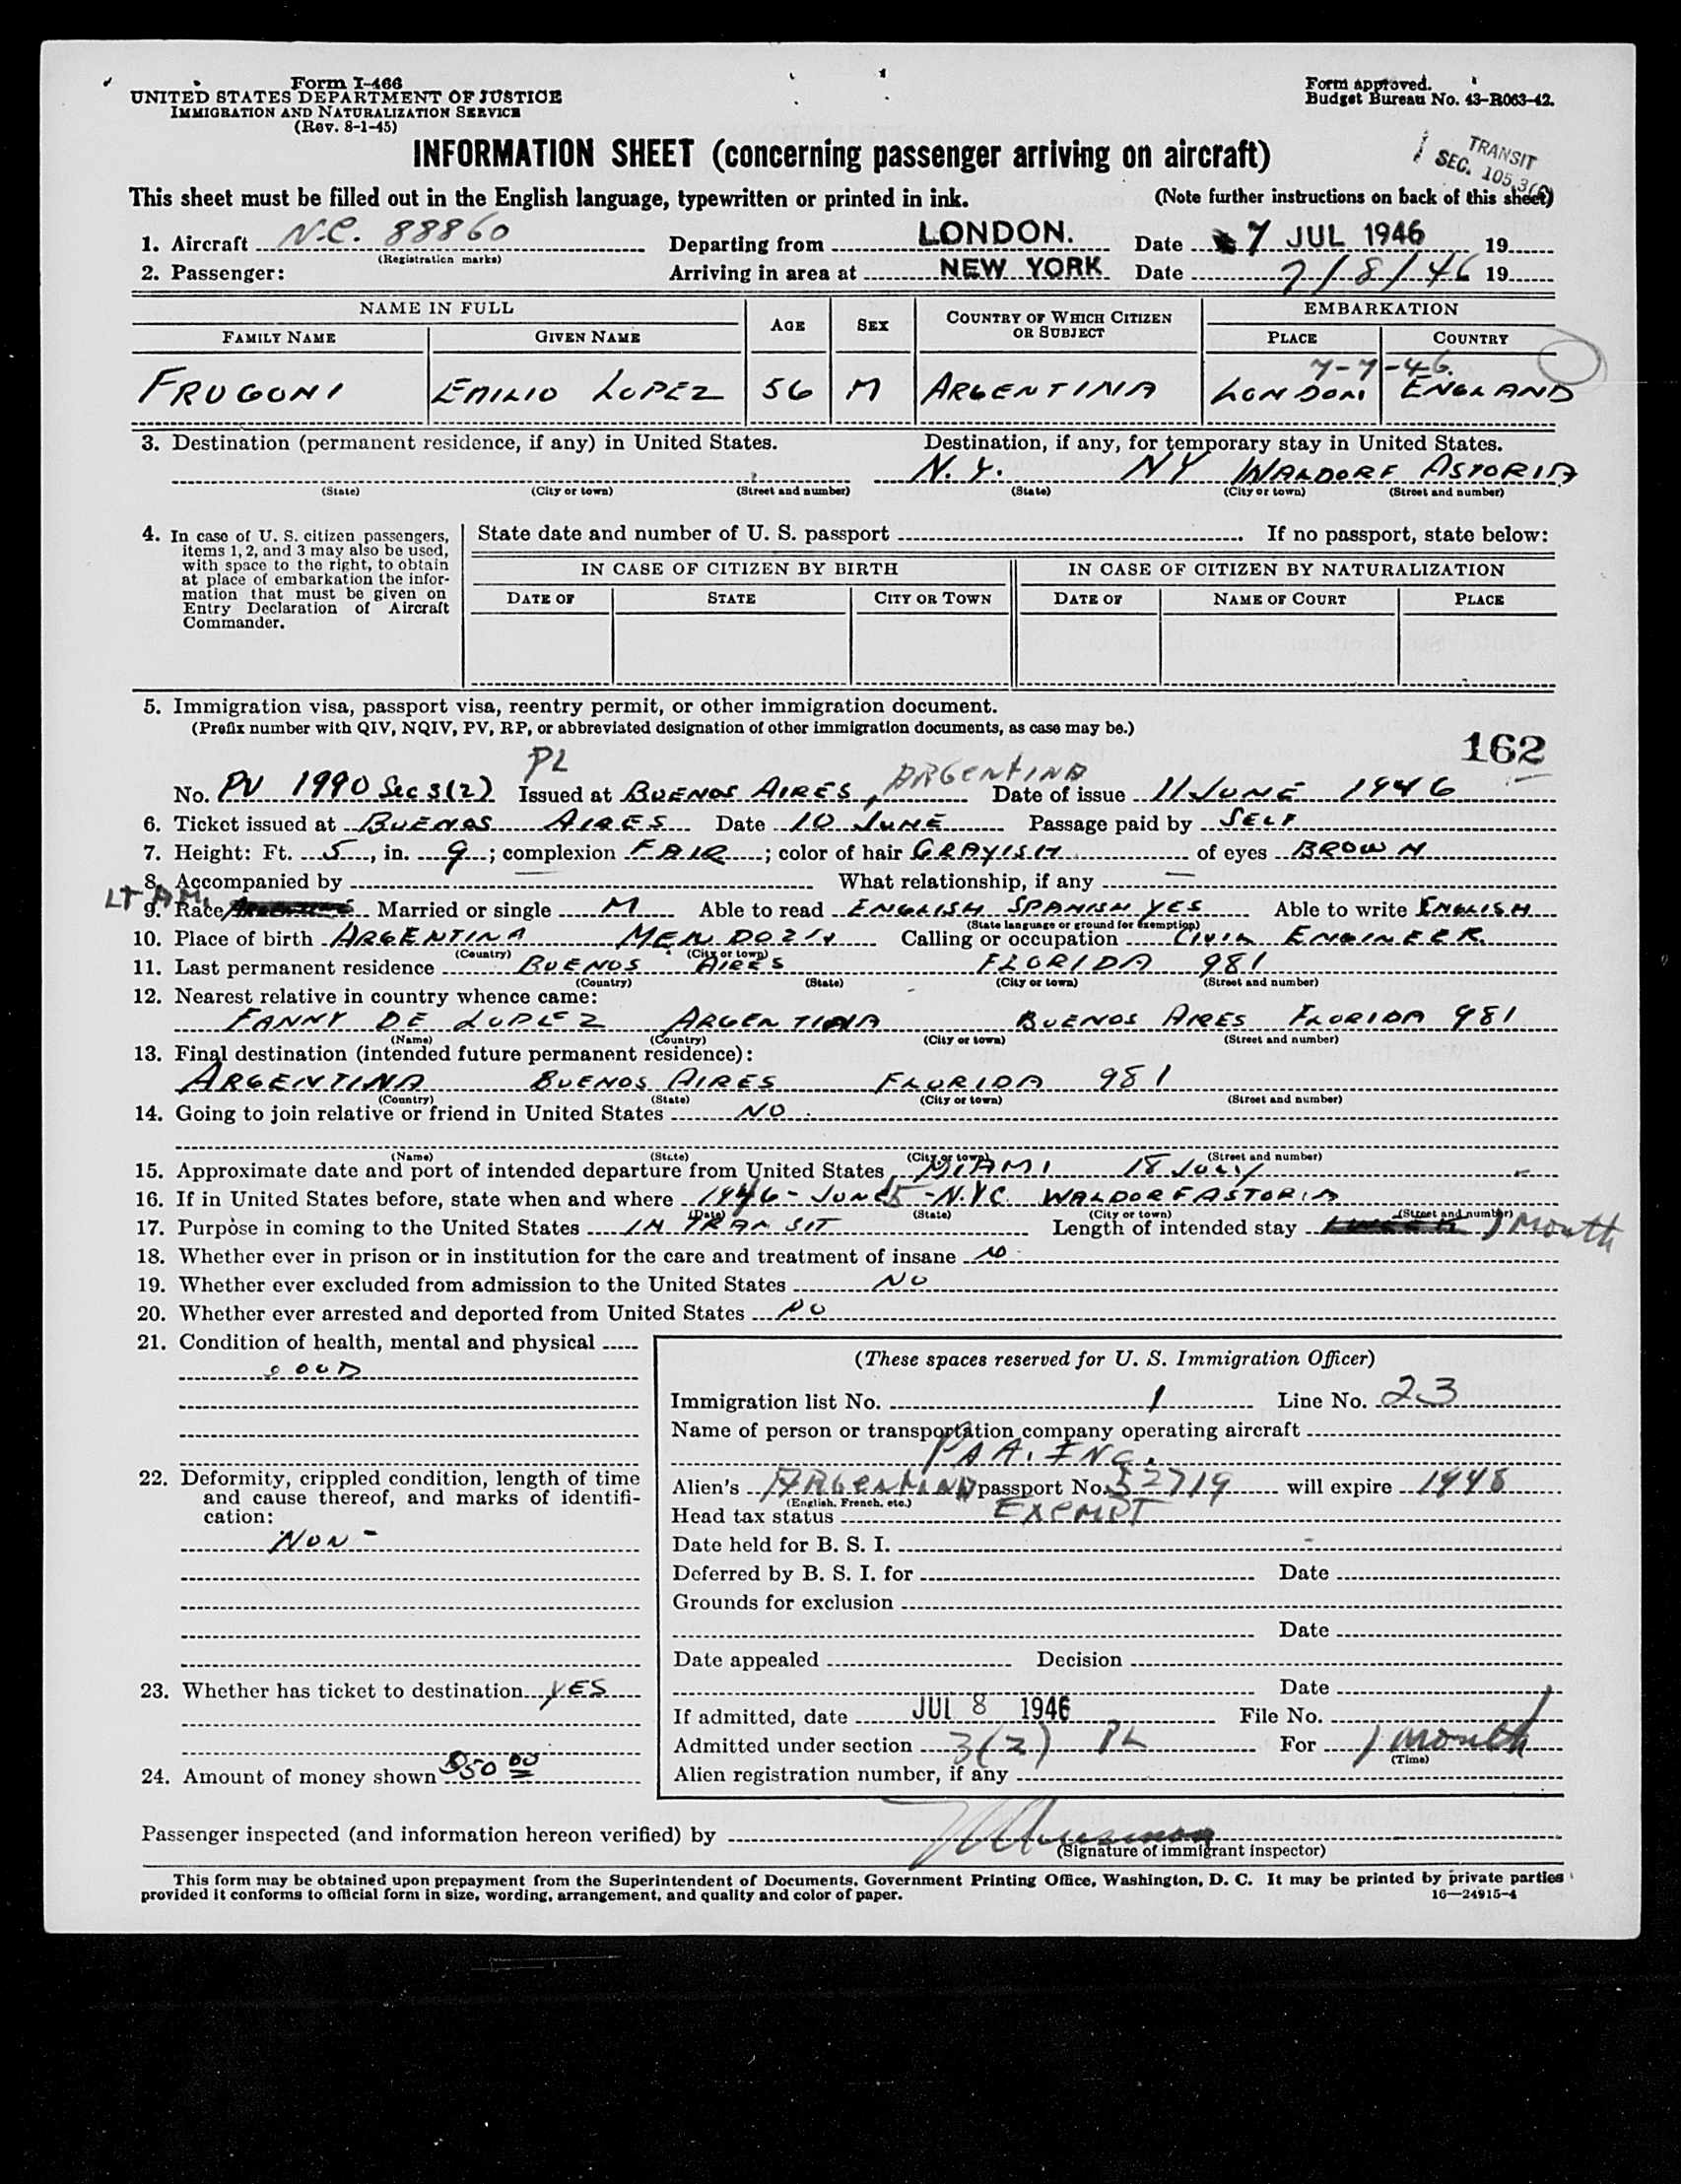 Form I-466
UNITED STATES DEPARTMENT OF JUSTICE
IMMIGRATION AND NATURALIZATION SERVICE
(Rev. 8-1-45)
Form approved.
Budget Bureau No. 43-R063-42.
INFORMATION SHEET (concerning passenger arriving on aircraft)
TRANSIT
SEC. 105.3
This sheet must be filled out in the English language, typewritten or printed in ink. (Note further instructions on back of this sheet)
1. Aircraft N.C. 88860 Departing from LONDON. Date 7 JUL 1946 19
(Registration marks)
2. Passenger: Arriving in area at NEW YORK Date 7/8/46 19
NAME IN FULL AGE SEX COUNTRY OF WHICH CITIZEN OR SUBJECT EMBARKATION
FAMILY NAME GIVEN NAME PLACE COUNTRY
7-7-46.
FRUGONI EMILIO LOPEZ 56 M ARGENTINA LONDON ENGLAND
3. Destination (permanent residence, if any) in United States. Destination, if any, for temporary stay in United States.
N.Y. NY WALDORF ASTORIA
(State) (City or town) (Street and number) (State) (City or town) (Street and number)
4. In case of U. S. citizen passengers, items 1, 2, and 3 may also be used, with space to the right, to obtain at place of embarkation the information that must be given on Entry Declaration of Aircraft Commander.
State date and number of U. S. passport If no passport, state below:
IN CASE OF CITIZEN BY BIRTH IN CASE OF CITIZEN BY NATURALIZATION
DATE OF STATE CITY OR TOWN DATE OF NAME OF COURT PLACE
5. Immigration visa, passport visa, reentry permit, or other immigration document.
(Prefix number with QIV, NQIV, PV, RP, or abbreviated designation of other immigration documents, as case may be.)
162
PL
No. PV 1990 Sec 3(2) Issued at BUENOS AIRES, ARGENTINA Date of issue 11 JUNE 1946
6. Ticket issued at BUENOS AIRES Date 10 JUNE Passage paid by SELF
7. Height: Ft. 5, in. 9; complexion FAIR; color of hair GRAYISH of eyes BROWN
8. Accompanied by What relationship, if any —
LT AM.
9. Race Married or single M Able to read ENGLISH SPANISH YES Able to write ENGLISH
(State language or ground for exemption)
10. Place of birth ARGENTINA MENDOZA Calling or occupation CIVIL ENGINEER
(Country) (City or town)
11. Last permanent residence BUENOS AIRES FLORIDA 981
(Country) (State) (City or town) (Street and number)
12. Nearest relative in country whence came:
FANNY DE LOPEZ ARGENTINA BUENOS AIRES FLORIDA 981
(Name) (Country) (City or town) (Street and number)
13. Final destination (intended future permanent residence):
ARGENTINA BUENOS AIRES FLORIDA 981
(Country) (State) (City or town) (Street and number)
14. Going to join relative or friend in United States NO
(Name) (State) (City or town) (Street and number)
15. Approximate date and port of intended departure from United States MIAMI 18 July
16. If in United States before, state when and where 1946 - JUNE - N.Y.C. WALDORF ASTORIA
(Date) (State) (City or town) (Street and number)
17. Purpose in coming to the United States IN TRANSIT Length of intended stay 1 Month
18. Whether ever in prison or in institution for the care and treatment of insane NO
19. Whether ever excluded from admission to the United States NO
20. Whether ever arrested and deported from United States NO
21. Condition of health, mental and physical
GOOD
22. Deformity, crippled condition, length of time and cause thereof, and marks of identification:
NON -
23. Whether has ticket to destination YES
24. Amount of money shown $50 00
(These spaces reserved for U. S. Immigration Officer)
Immigration list No. 1 Line No. 23
Name of person or transportation company operating aircraft
PAA. INC.
Alien's ARGENTINA passport No. 52719 will expire 1948
(English, French, etc.)
Head tax status EXEMPT
Date held for B. S. I.
Deferred by B. S. I. for Date
Grounds for exclusion
Date
Date appealed Decision
Date
If admitted, date JUL 8 1946 File No.
Admitted under section 3(2) PL For 1 month
(Time)
Alien registration number, if any
Passenger inspected (and information hereon verified) by
(Signature of immigrant inspector)
This form may be obtained upon prepayment from the Superintendent of Documents, Government Printing Office, Washington, D. C. It may be printed by private parties
provided it conforms to official form in size, wording, arrangement, and quality and color of paper. 16—24915-4